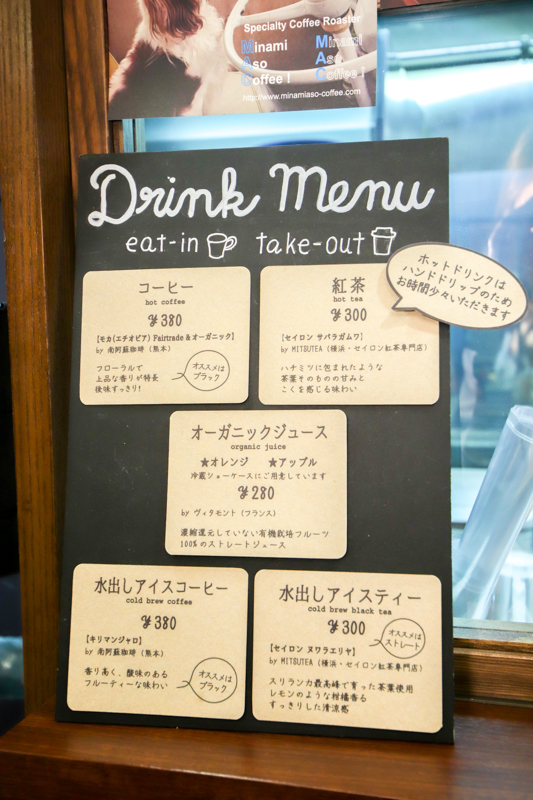 Specialty Coffee Roaster
Minami Aso Coffee !
Minami Aso Coffee !
http://www.minamiaso-coffee.com
Drink Menu
eat-in take-out
ホットドリンクは
ハンドドリップのため
お時間少々いただきます
コーヒー
hot coffee
¥380
【モカ(エチオピア) Fairtrade & オーガニック】
by 南阿蘇珈琲（熊本）
フローラルで
上品な香りが特長
後味すっきり!
オススメは
ブラック
紅茶
hot tea
¥300
【セイロン サバラガムワ】
by MITSUTEA（横浜・セイロン紅茶専門店）
ハチミツに包まれたような
茶葉そのものの甘みと
こくを感じる味わい
オーガニックジュース
organic juice
★オレンジ ★アップル
冷蔵ショーケースにご用意しています
¥280
by ヴィタモント（フランス）
濃縮還元していない有機栽培フルーツ
100%のストレートジュース
水出しアイスコーヒー
cold brew coffee
¥380
【キリマンジャロ】
by 南阿蘇珈琲（熊本）
香り高く、酸味のある
フルーティーな味わい
オススメは
ブラック
水出しアイスティー
cold brew black tea
¥300
オススメは
ストレート
【セイロン ヌワラエリヤ】
by MITSUTEA（横浜・セイロン紅茶専門店）
スリランカ最高峰で育った茶葉使用
レモンのような柑橘香る
すっきりした清涼感